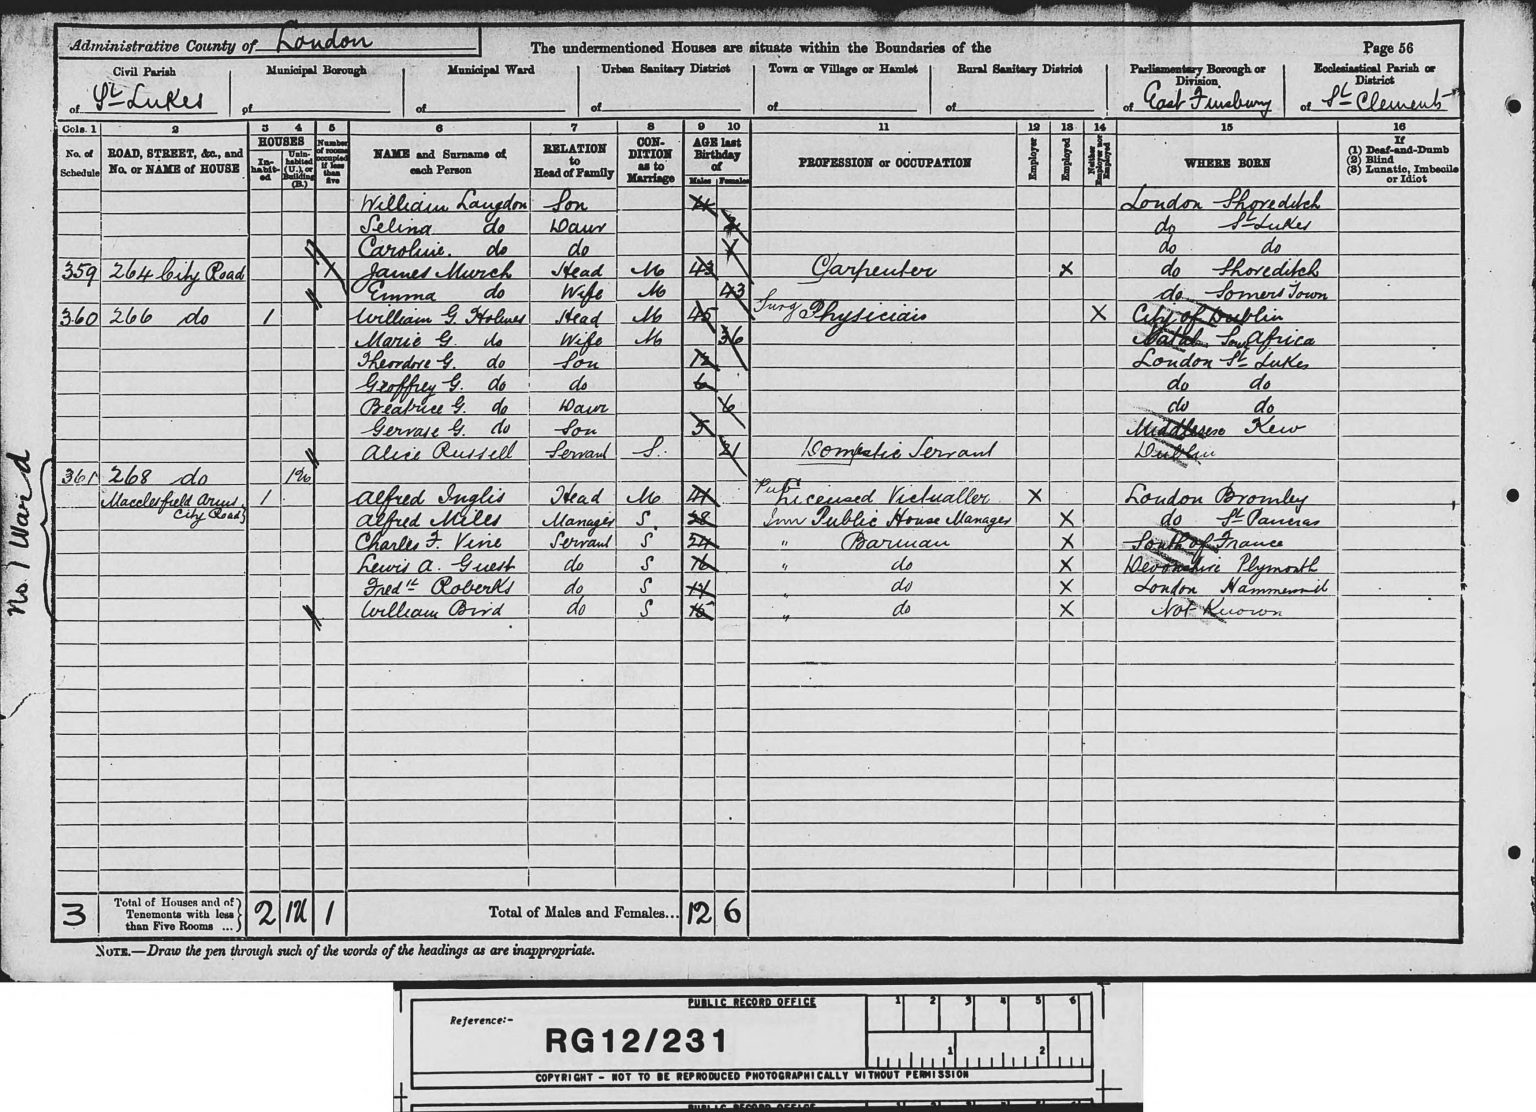 Administrative County of London
The undermentioned Houses are situate within the Boundaries of the
Page 56
Civil Parish
of St Lukes
Municipal Borough
of
Municipal Ward
of
Urban Sanitary District
of
Town or Village or Hamlet
of
Rural Sanitary District
of
Parliamentary Borough or Division
of East Finsbury
Ecclesiastical Parish or District
of St Clements
Cols. 1 2 3 4 5 6 7 8 9 10 11 12 13 14 15 16
No. of Schedule
ROAD, STREET, &c., and No. or NAME of HOUSE
HOUSES
In-habit-ed
Unin-habited (U.), or Building (B.)
Number of rooms occupied if less than five
NAME and Surname of each Person
RELATION to Head of Family
CON-DITION as to Marriage
AGE last Birthday of
Males Females
PROFESSION or OCCUPATION
Employer
Employed
Neither Employer nor Employed
WHERE BORN
If
(1) Deaf-and-Dumb
(2) Blind
(3) Lunatic, Imbecile or Idiot
William Langdon Son 4 London Shoreditch
Selina do Daur 2 do St Lukes
Caroline do do do do
359 264 City Road James Murch Head M 43 Carpenter X do Shoreditch
Emma do Wife M 43 do Somers Town
360 266 do 1 William G Holmes Head M 45 Surg Physician X City of Dublin
Marie G. do Wife M 36 Natal Africa
Theordore G. do Son 12 London St Lukes
Geoffrey G. do do 6 do do
Beatrice G. do Daur 6 do do
Gervase G. do Son 5 Middlesex Kew
Alice Russell Servant S. 21 Domestic Servant Dublin
361 268 do
Macclesfield Arms City Road 1 Alfred Inglis Head M 41 Pub Licensed Victualler X London Bromley
Alfred Miles Manager S. 28 Inn Public House Manager X do St Pancras
Charles F. Vine Servant S 24 " Barman X South of France
Lewis A. Guest do S 16 " do X Devonshire Plymouth
Fredk Roberts do S " do X London Hammersmith
William Bird do S " do X Not Known
No 1 Ward
3
Total of Houses and of Tenements with less than Five Rooms ...
2 1U 1
Total of Males and Females...
12 6
NOTE.—Draw the pen through such of the words of the headings as are inappropriate.
PUBLIC RECORD OFFICE
1 2 3 4 5 6
Reference:-
RG12/231
1 2
COPYRIGHT - NOT TO BE REPRODUCED PHOTOGRAPHICALLY WITHOUT PERMISSION
PUBLIC RECORD OFFICE